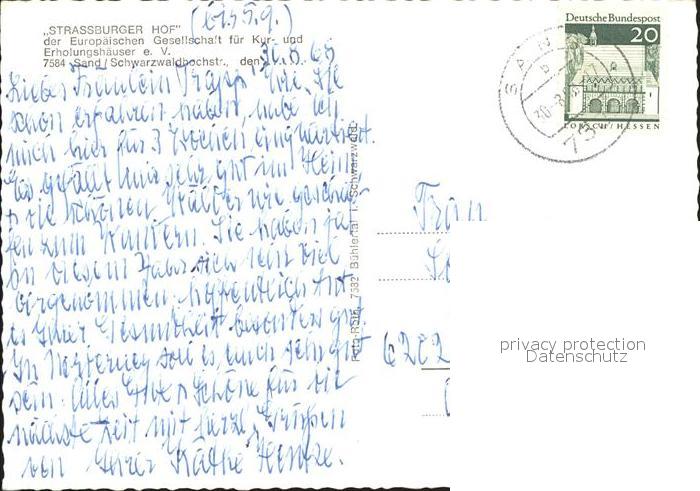 (bis 5.9.)
„STRASSBURGER HOF"
der Europäischen Gesellschaft für Kur- und
Erholungshäuser e. V.
7584 Sand / Schwarzwaldhochstr., den 30.8.68
Liebes Fräulein Trapp! Wie Sie
schon erfahren haben, habe ich
mich hier für 3 Wochen einquartiert.
Es gefällt mir sehr gut im Heim
die schönen Wälder wie geschaf-
fen zum Wandern. Sie haben ja
in diesem Jahr sich sehr viel
vorgenommen. Hoffentlich tut
es Ihrer Gesundheit besonders gut.
In Norderney soll es auch sehr gut
sein. Alles Gute u. Schöne für die
nächste Zeit mit herzl. Grüßen
von Ihrer Käthe Hentze.
Foto Röth, 7582 Bühlertal i. Schwarzwald
Deutsche Bundespost
20
LORSCH/HESSEN
SAN
6202
privacy protection
Datenschutz